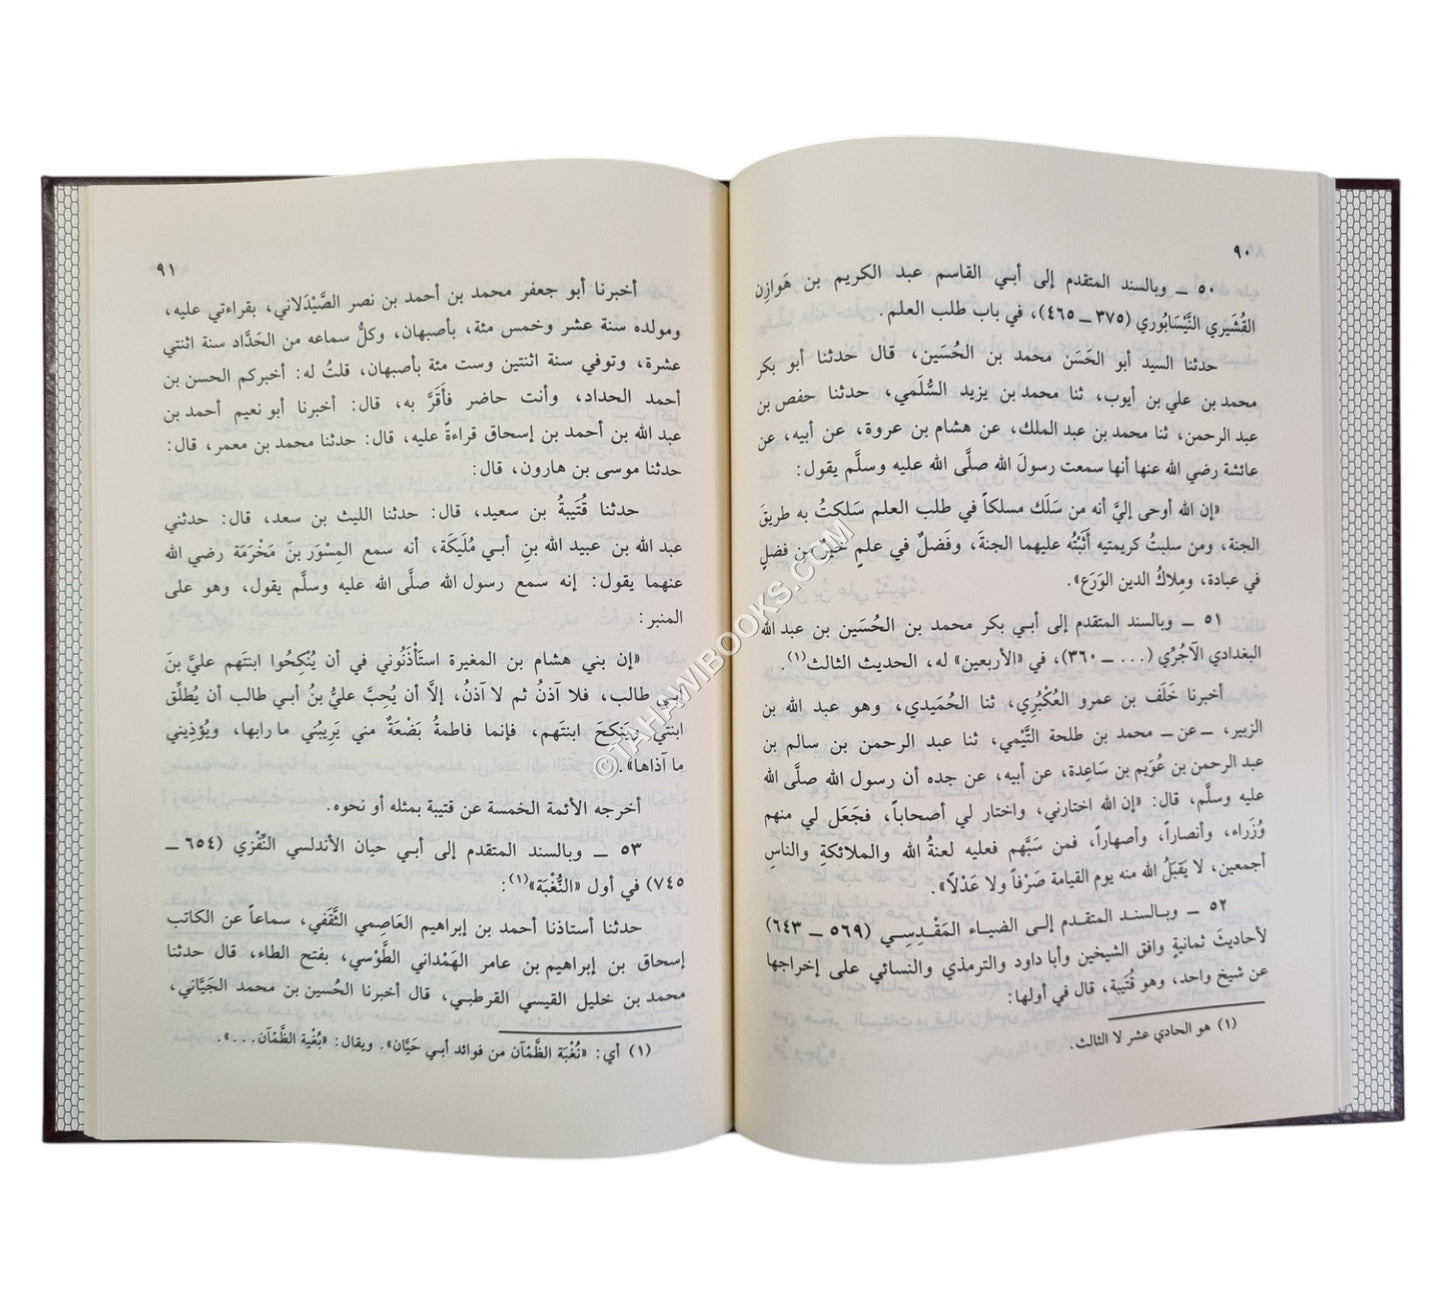 ٩٠
٥٠ ــ وبالسند المتقدم إلى أبـي القاسم عبد الكريم بن هَوازِن
القُشَيري النَّيْسَابُوري (٣٧٥ ــ ٤٦٥)، في باب طلب العلم.
حدثنا السيد أبو الحَسَن محمد بن الحُسَين، قال حدثنا أبو بكر
محمد بن علي بن أيوب، ثنا محمد بن يزيد السُّلَمي، حدثنا حفص بن
عبد الرحمن، ثنا محمد بن عبد الملك، عن هشام بن عروة، عن أبيه، عن
عائشة رضي الله عنها أنها سمعت رسولَ الله صلَّى الله عليه وسلَّم يقول:
«إن الله أوحى إليَّ أنه من سَلَك مسلكاً في طلب العلم سَلكتُ به طريقَ
الجنة، ومن سلبتُ كريمتيه أَثَبْتُه عليهما الجنةَ، وفَضلٌ في علمٍ خيرٌ من فضلٍ
في عبادة، ومِلاكُ الدين الوَرَع».
٥١ ــ وبالسند المتقدم إلى أبـي بكر محمد بن الحُسَين بن عبد الله
البغدادي الآجُرِّي (... ــ ٣٦٠)، في «الأربعين» له، الحديث الثالث(١).
أخبرنا خَلَف بن عمرو العُكْبُرِي، ثنا الحُمَيدي، وهو عبد الله بن
الزبير، ــ عن ــ محمد بن طلحة التَّيْمي، ثنا عبد الرحمن بن سالم بن
عبد الرحمن بن عُوَيم بن سَاعِدة، عن أبيه، عن جده أن رسول الله صلَّى الله
عليه وسلَّم، قال: «إن الله اختارني، واختار لي أصحاباً، فجَعَل لي منهم
وُزَراء، وأنصاراً، وأصهاراً، فمن سَبَّهم فعليه لعنةُ الله والملائكةِ والناسِ
أجمعين، لا يَقبَلُ الله منه يوم القيامة صَرْفاً ولا عَدْلاً».
٥٢ ــ وبـالسنـد المتقدم إلـى الضيـاء المَقْـدِسِـي (٥٦٩ ــ ٦٤٣)
لأحاديثَ ثمانيةٍ وافق الشيخين وأبا داود والترمذي والنسائي على إخراجها
عن شيخ واحد، وهو قُتَيبة، قال في أولها:
(١) هو الحادي عشر لا الثالث.
٩١
أخبرنا أبو جعفر محمد بن أحمد بن نصر الصَّيْدَلاني، بقراءتي عليه،
ومولده سنة عشر وخمس مئة، بأصبهان، وكلُّ سماعه من الحَدَّاد سنة اثنتي
عشرة، وتوفي سنة اثنتين وست مئة بأصبهان، قلتُ له: أخبركم الحسن بن
أحمد الحداد، وأنت حاضر فَأَقَرَّ به، قال: أخبرنا أبو نعيم أحمد بن
عبد الله بن أحمد بن إسحاق قراءةً عليه، قال: حدثنا محمد بن معمر، قال:
حدثنا موسى بن هارون، قال:
حدثنا قُتَيبةُ بن سعيد، قال: حدثنا الليث بن سعد، قال: حدثني
عبد الله بن عبيد الله بنِ أبـي مُلَيكَة، أنه سمع المِسْوَر بنَ مَخْرَمَة رضي الله
عنهما يقول: إنه سمع رسول الله صلَّى الله عليه وسلَّم يقول، وهو على
المنبر:
«إن بني هشام بن المغيرة استَأْذَنُوني في أن يُنْكِحُوا ابنتَهم عليَّ بنَ
أبـي طالب، فلا آذنُ ثم لا آذنُ، إلَّا أن يُحِبَّ عليُّ بنُ أبـي طالب أن يُطلِّق
ابنتي، ويَنكِحَ ابنتَهم، فإنما فاطمةُ بَضْعَةٌ مني يَرِيبُني ما رابها، ويُؤذِيني
ما آذاها».
أخرجه الأئمة الخمسة عن قتيبة بمثله أو نحوه.
٥٣ ــ وبالسند المتقدم إلى أبـي حيان الأندلسي النِّفْزي (٦٥٤ ــ
٧٤٥) في أول «النُّغْبَة»(١):
حدثنا أستاذنا أحمد بن إبراهيم العَاصِمي الثَّقَفي، سماعاً عن الكاتب
إسحاق بن إبراهيم بن عامر الهَمْداني الطَّوْسي، بفتح الطاء، قال حدثنا
محمد بن خليل القيسي القرطبـي، قال أخبرنا الحُسين بن محمد الجَيَّاني،
(١) أي: «نُغْبَة الظَّمْآن من فوائد أبـي حَيَّان». ويقال: «بُغْية الظَّمْآن...».
©TAHAWIBOOKS.COM